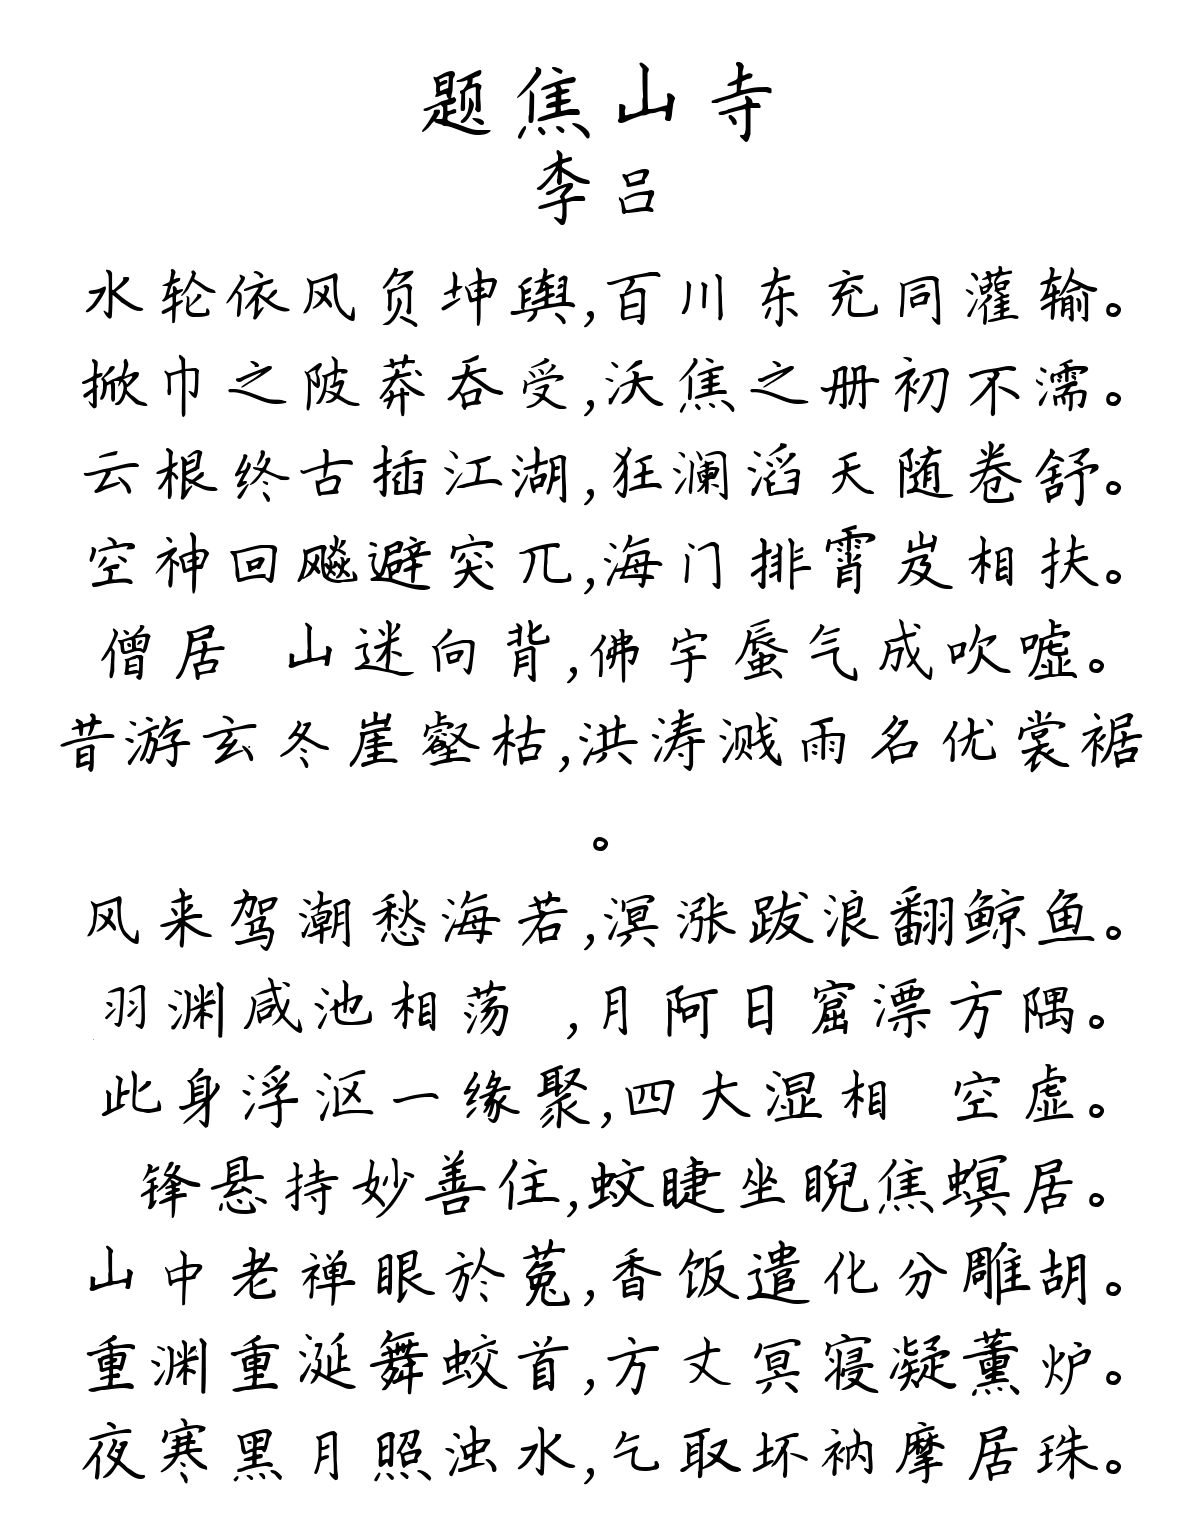 题焦山寺
李吕
水轮依风负坤舆,百川东充同灌输。
掀巾之陂莽吞受,沃焦之册初不濡。
云根终古插江湖,狂澜滔天随卷舒。
空神回飚避突兀,海门排霄岌相扶。
僧居 山迷向背,佛宇蜃气成吹嘘。
昔游玄冬崖壑枯,洪涛溅雨名优裳裾
。
风来驾潮愁海若,溟涨跋浪翻鲸鱼。
羽渊咸池相荡 ,月阿日窟漂方隅。
此身浮沤一缘聚,四大湿相 空虚。
锋悬持妙善住,蚊睫坐睨焦螟居。
山中老禅眼於菟,香饭遣化分雕胡。
重渊重涎舞蛟首,方丈冥寝凝薰炉。
夜寒黑月照浊水,乞取坏衲摩居珠。